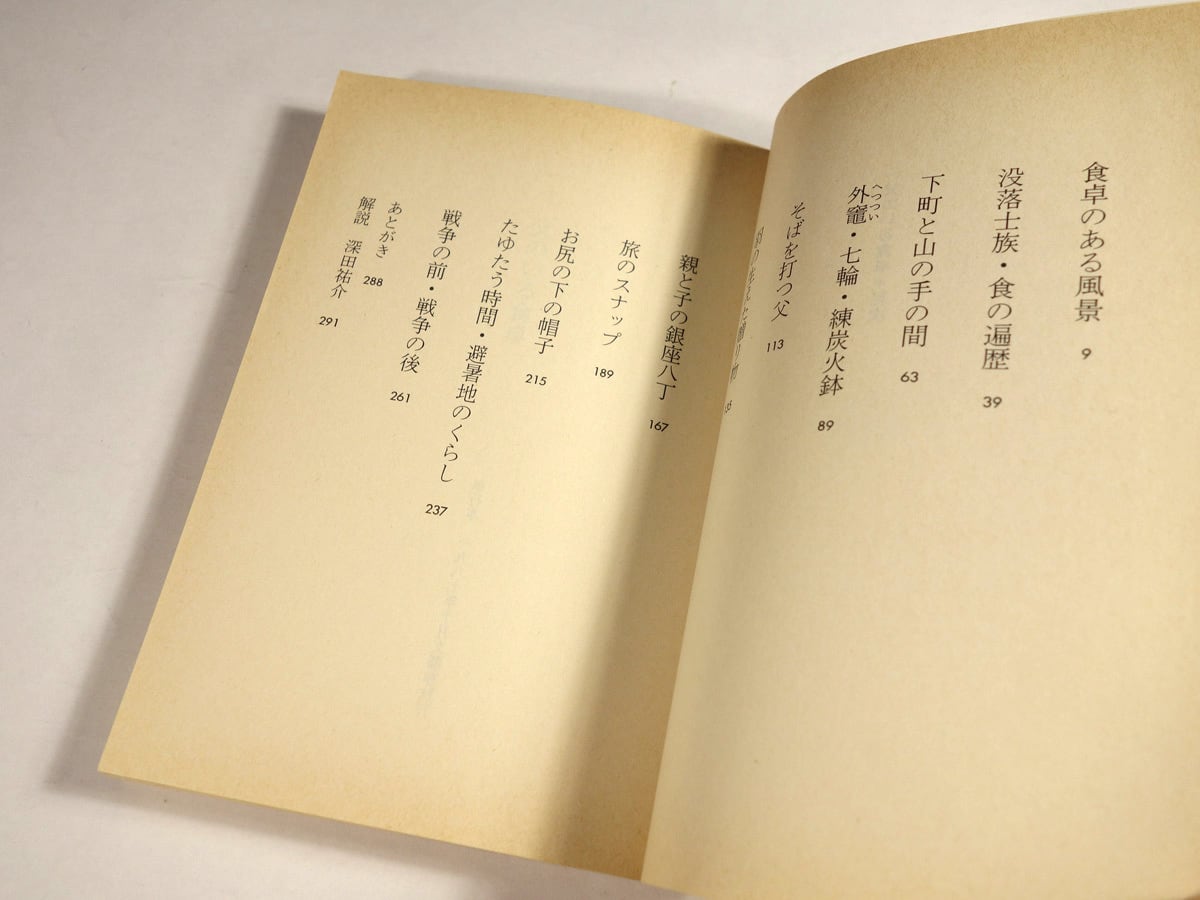 食卓のある風景 9
没落士族・食の遍歴 39
下町と山の手の間 63
外竈・七輪・練炭火鉢 89
へっつい
そばを打つ父 113
親と子の銀座八丁 167
旅のスナップ 189
お尻の下の帽子 215
たゆたう時間・避暑地のくらし 237
戦争の前・戦争の後 261
あとがき 288
解説 深田祐介 291